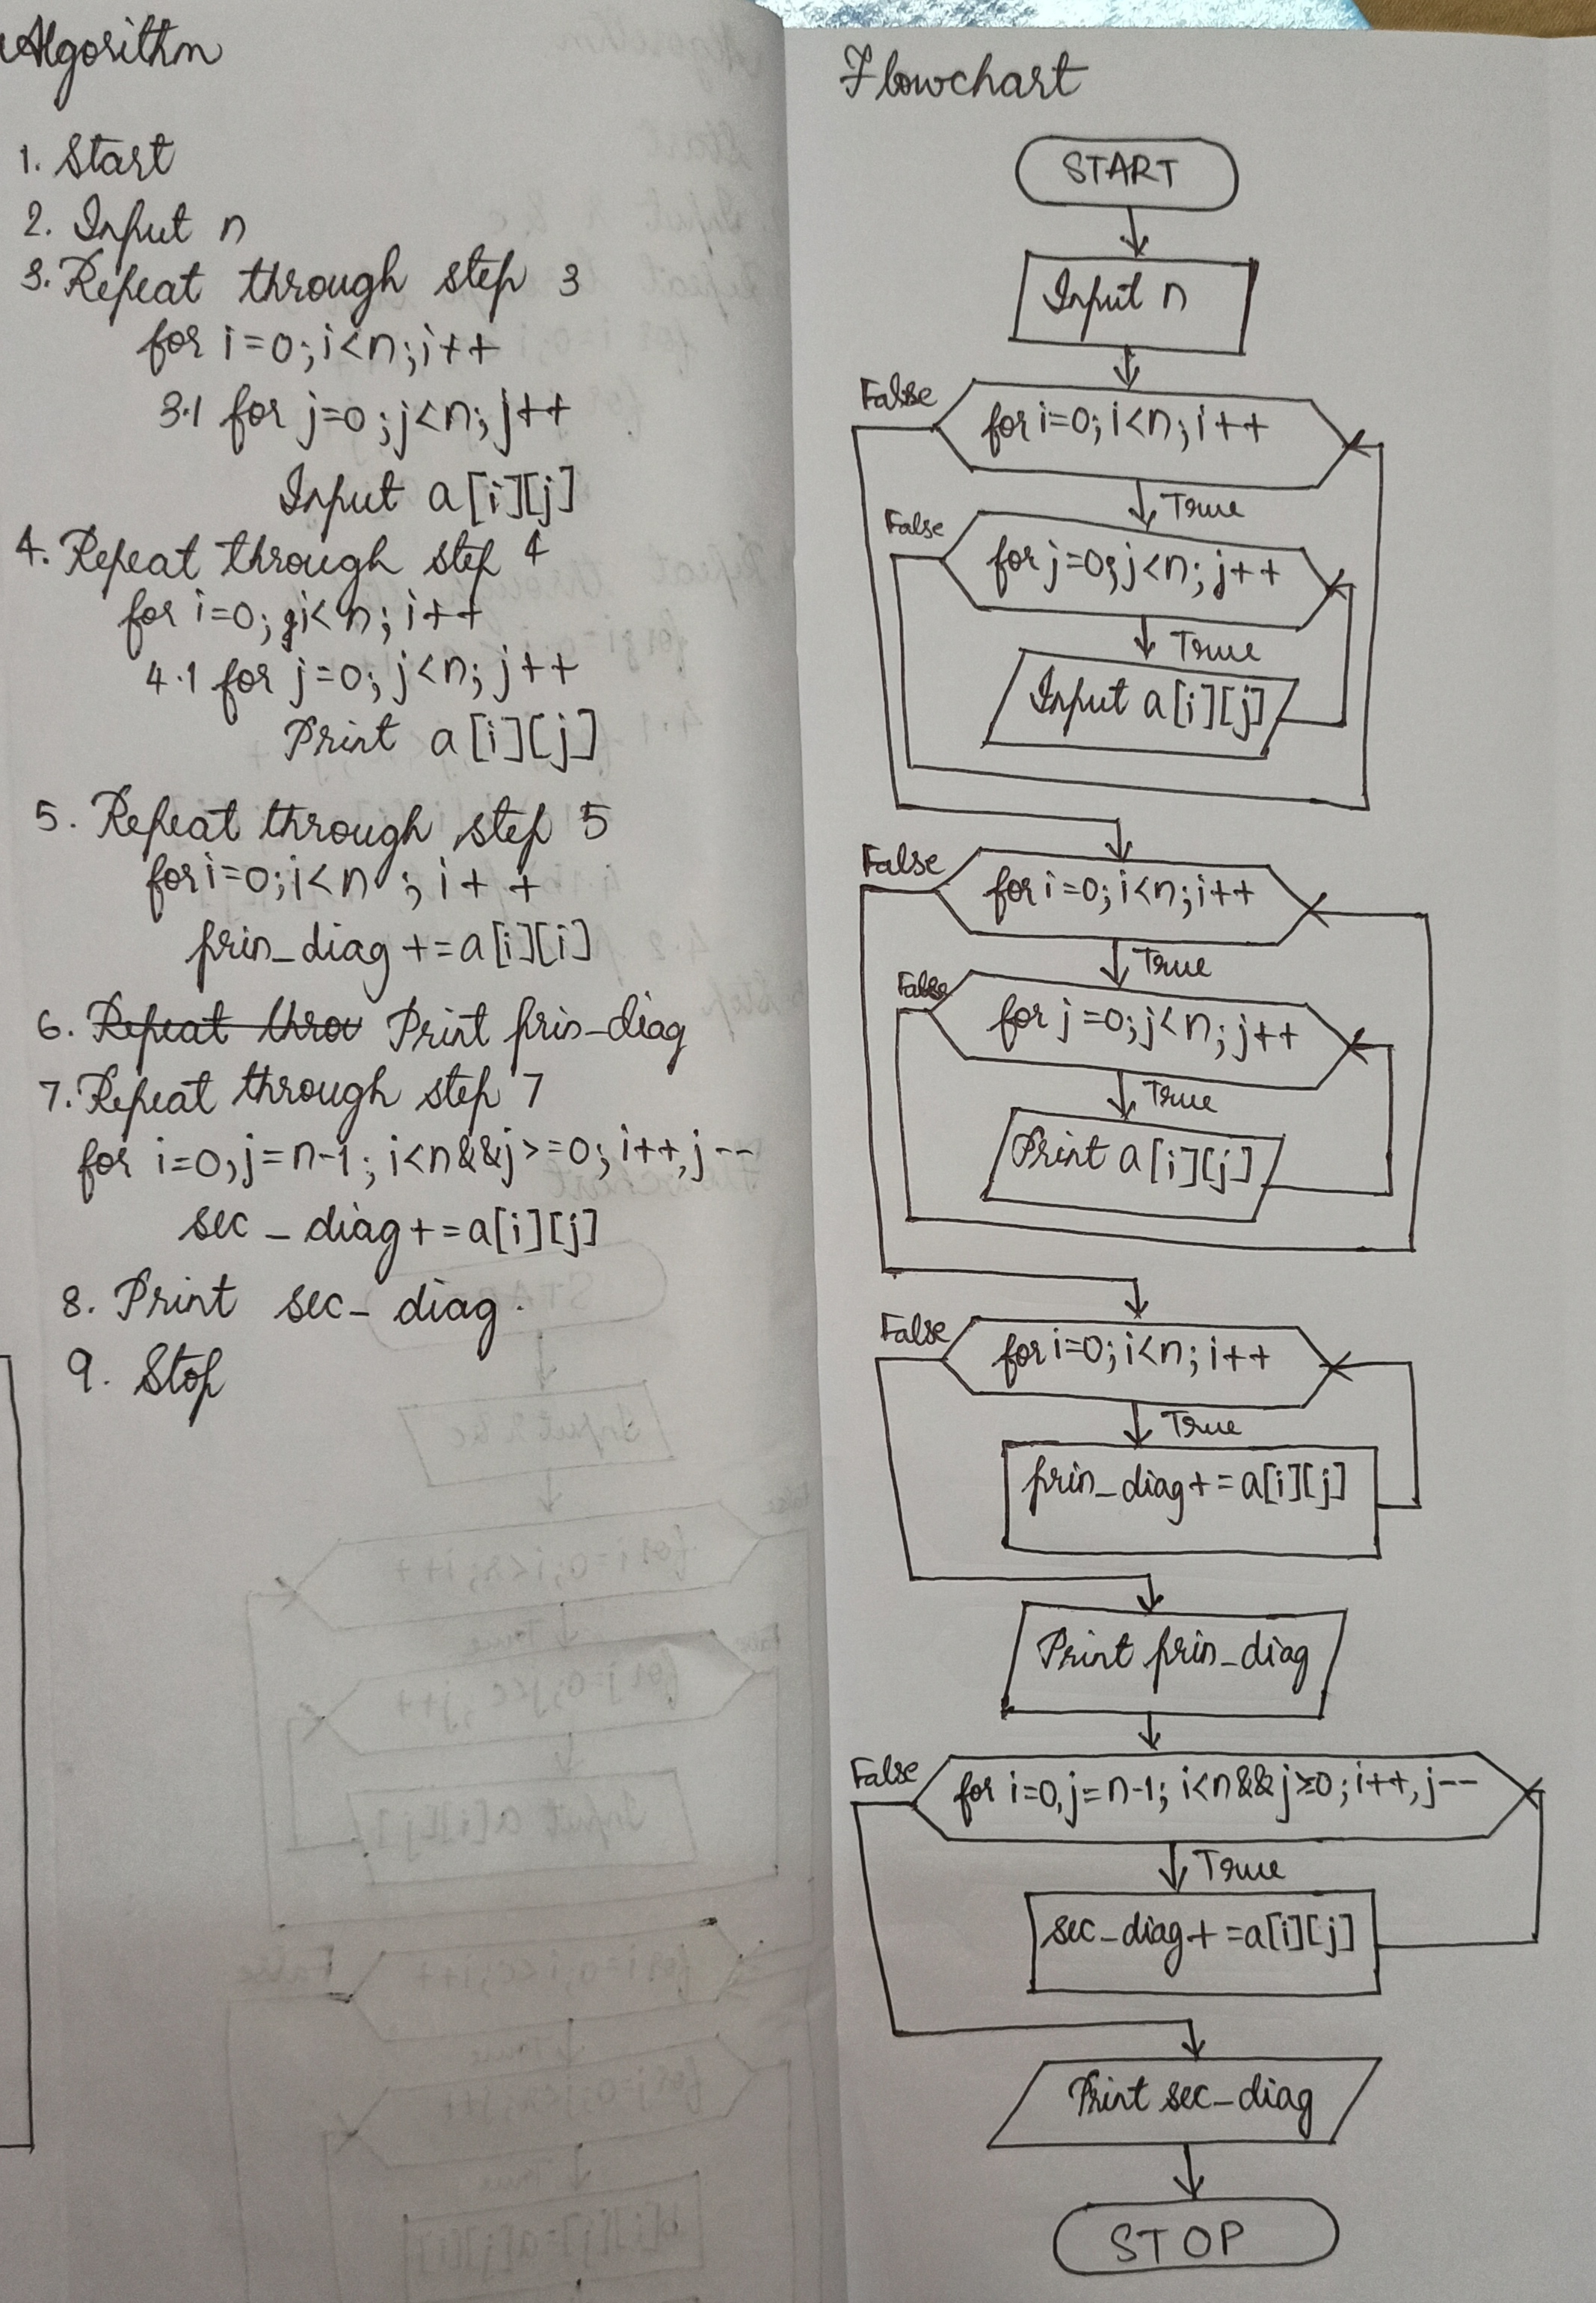 Algorithm
1. Start
2. Input n
3. Repeat through step 3
for i=0; i<n; i++
3.1 for j=0; j<n; j++
Input a[i][j]
4. Repeat through step 4
for i=0; i<n; i++
4.1 for j=0; j<n; j++
Print a[i][j]
5. Repeat through step 5
for i=0; i<n; i++
prin_diag += a[i][i]
6. Print prin_diag
7. Repeat through step 7
for i=0, j=n-1; i<n&&j>=0; i++, j--
sec_diag += a[i][j]
8. Print sec_diag.
9. Stop
Flowchart
START
Input n
False
for i=0; i<n; i++
True
False
for j=0; j<n; j++
True
Input a[i][j]
False
for i=0; i<n; i++
True
False
for j=0; j<n; j++
True
Print a[i][j]
False
for i=0; i<n; i++
True
prin_diag += a[i][j]
Print prin_diag
False
for i=0, j=n-1; i<n&&j>=0; i++, j--
True
sec_diag += a[i][j]
Print sec_diag
STOP